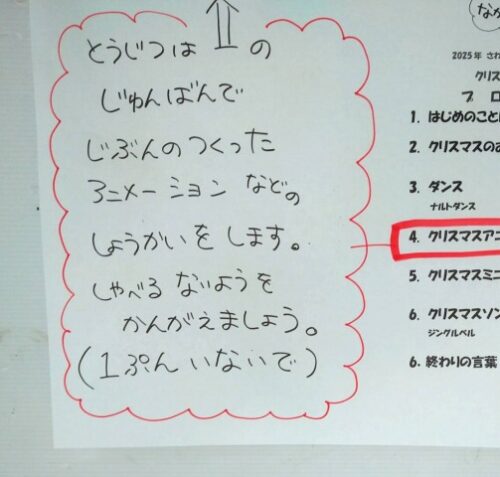 とうじつは ⇑ の
じゅんばんで
じぶんのつくった
アニメーション などの
しょうかいを します。
しゃべる ないようを
かんがえましょう。
(1ぷん いないで)
なか
2025年 さわ
クリス
プロ
1. はじめのことば
2. クリスマスのお
3. ダンス
ナルトダンス
4. クリスマスアニ
5. クリスマスミニ
6. クリスマスソン
ジングルベル
6. 終わりの言葉